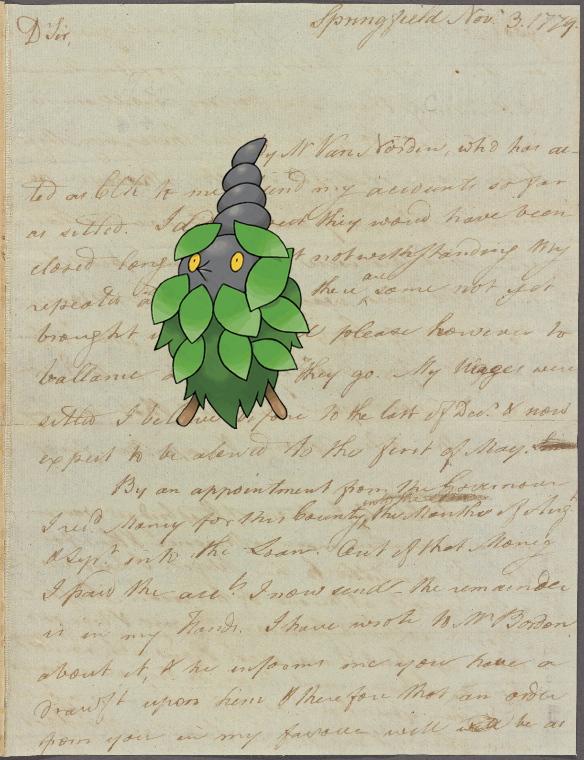 Springfield Nov.r 3. 1779.
D.r Sir,
y Mr Van Norden, who has ac-
ted as Clk to me send my accounts so far
as settled. I would have been
closed long notwithstanding my
repeated there are some not yet
brought please however to
ballance they go. My Wages were
settled I before to the last of Dec.r & now
expect to be allowed to the first of May.
By an appointment from the Governour
I recd Money for this County for the Months of Aug
& Sept into the Loan. Out of that Money
I paid the acc.ts I now send the remainder
is in my Hands. I have wrote to Mr Borden
about it, & he informs me you have a
Draugt upon him & therefore that an order
from you in my favour will be as